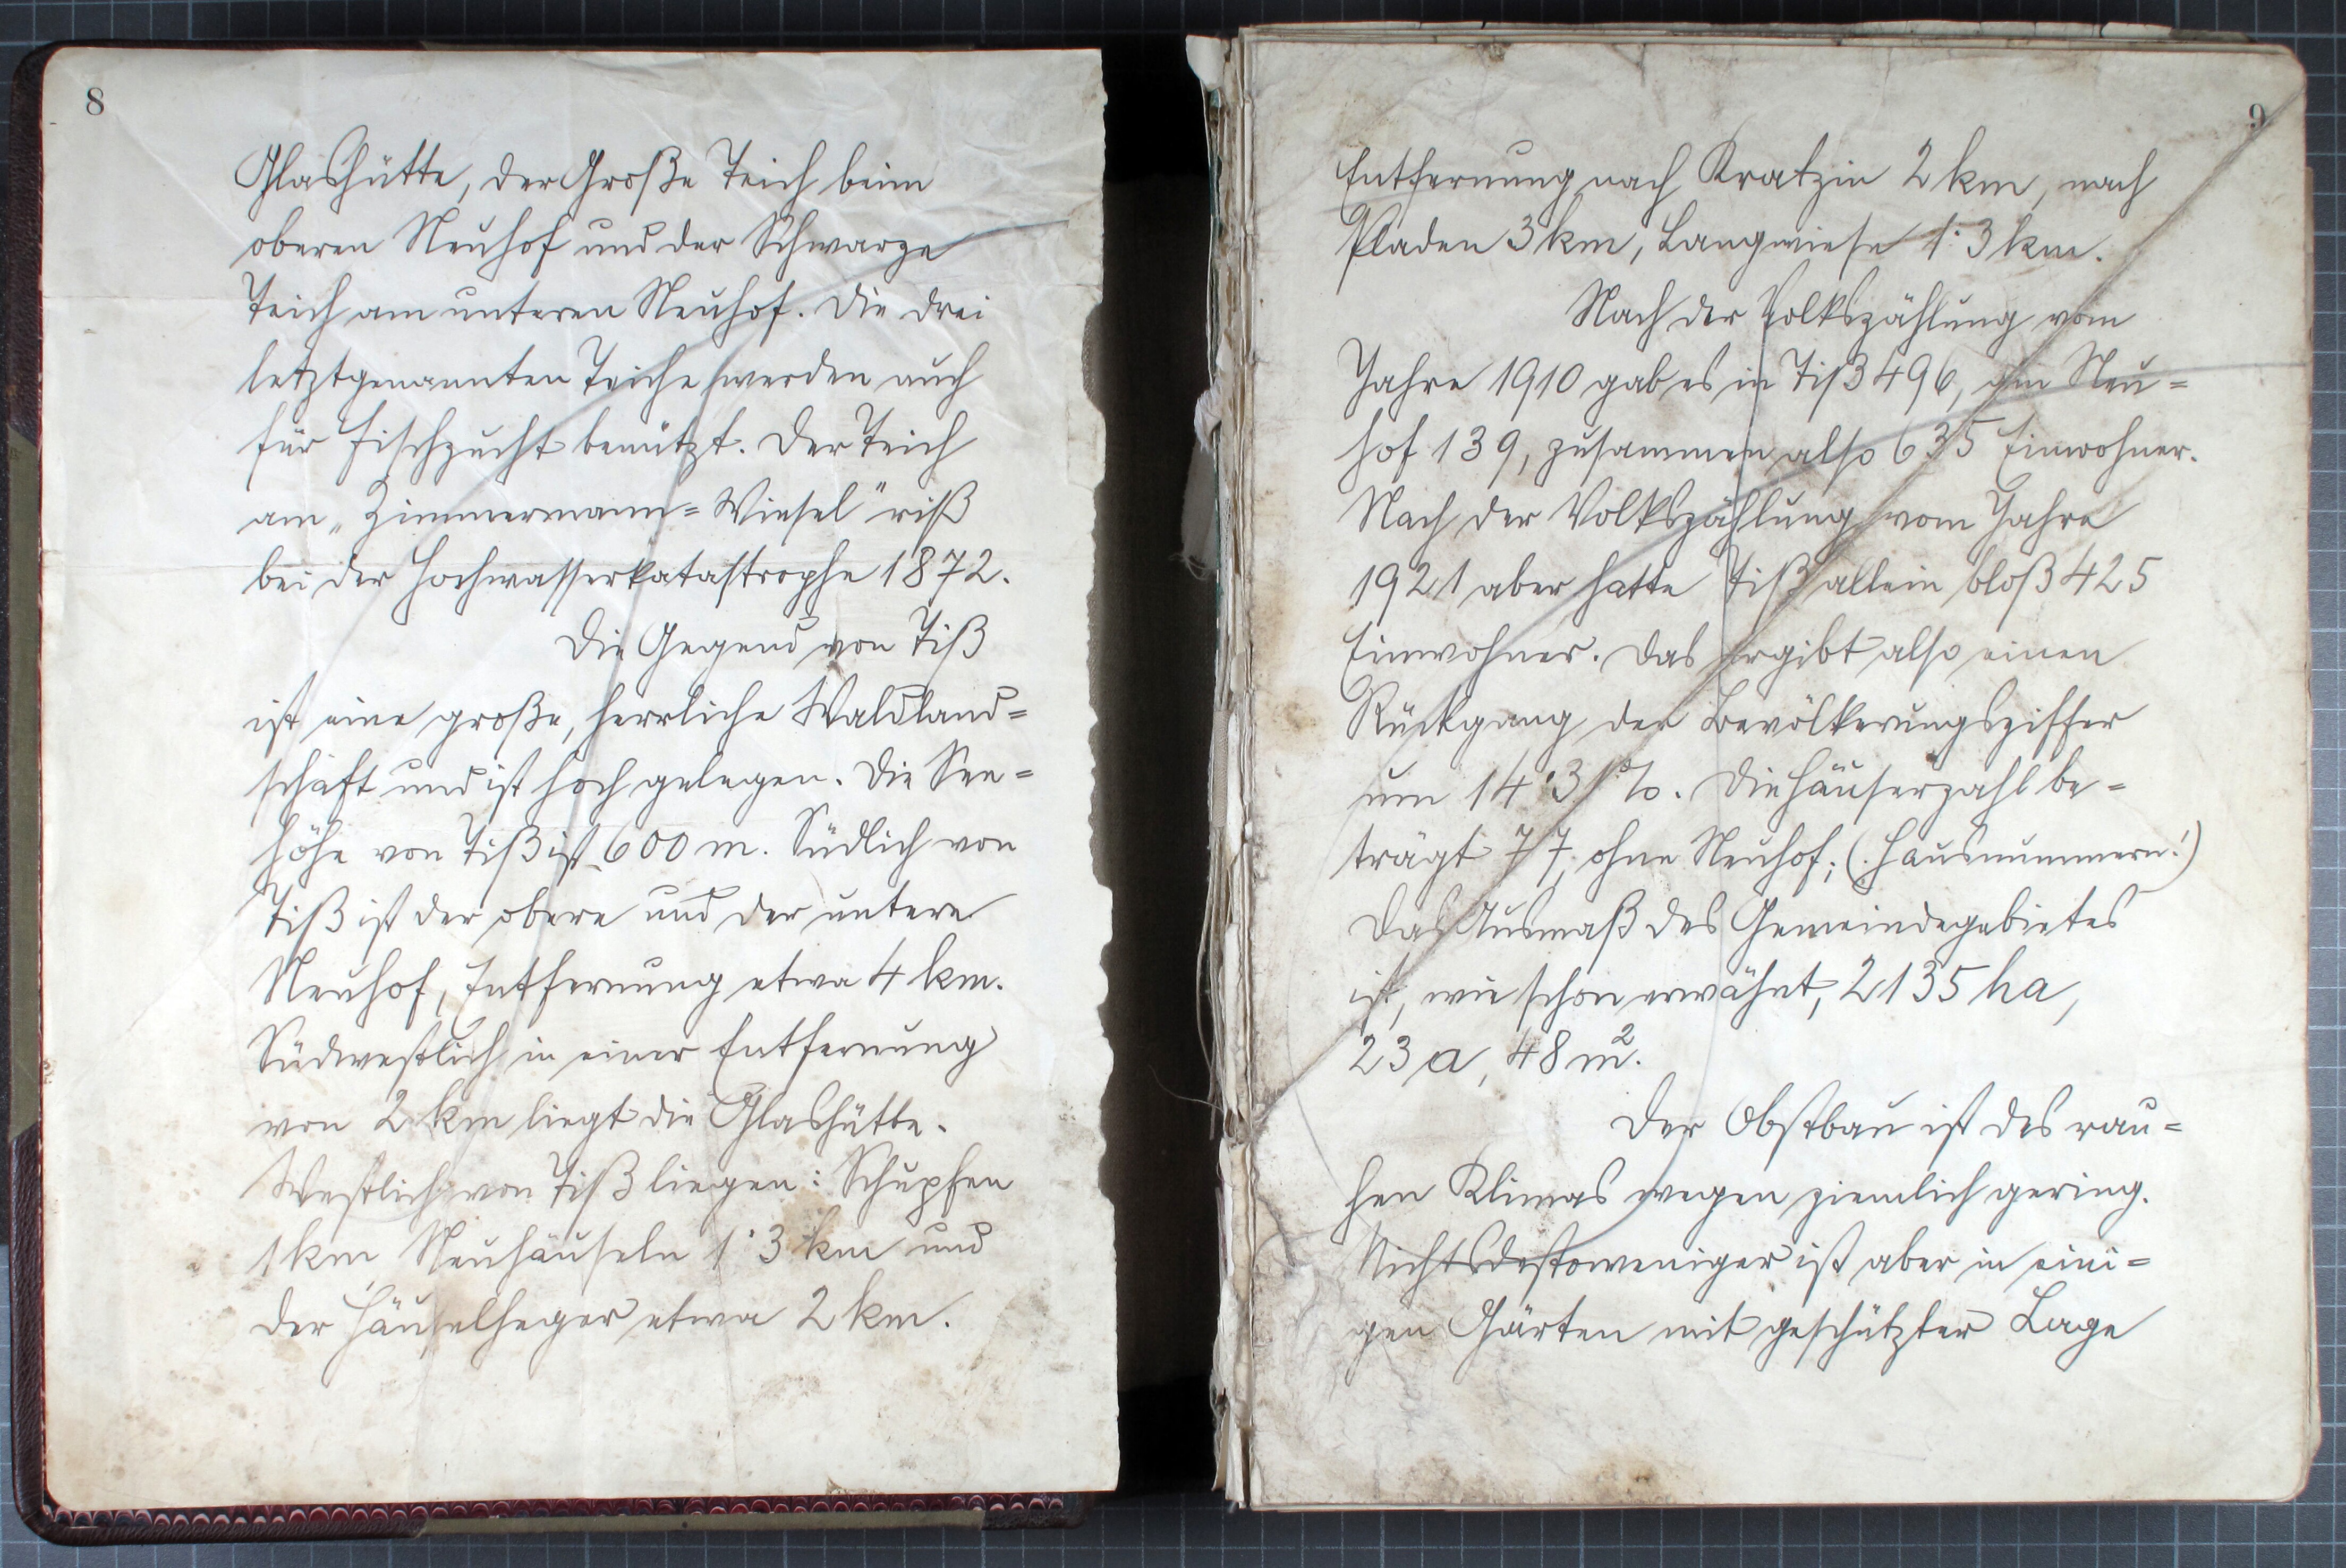 8
Glashütte, der Große Teich beim
oberen Neuhof und der Schwarze
Teich am unteren Neuhof. Die drei
letztgenannten Teiche werden auch
für Fischzucht benützt. Der Teich
am „Zimmermann=Wiesel" riß
bei der Hochwasserkatastrophe 1872.
Die Gegend von Tiß
ist eine große, herrliche Waldland=
schaft und ist hoch gelegen. Die See=
höhe von Tiß ist 600 m. Südlich von
Tiß ist der obere und der untere
Neuhof, Entfernung etwa 4 km.
Südwestlich in einer Entfernung
von 2 km liegt die Glashütte.
Westlich von Tiß liegen: Schupfen
1 km Neuhäuseln 1·3 km und
der Häuselheger etwa 2 km.
9
Entfernung nach Kratzin 2 km, nach
Pladen 3 km, Langwiese 1·3 km.
Nach der Volkszählung vom
Jahre 1910 gab es in Tiß 496, am Neu=
hof 139, zusammen also 635 Einwohner.
Nach der Volkszählung vom Jahre
1921 aber hatte Tiß allein bloß 425
Einwohner. Das ergibt also einen
Rückgang der Bevölkerungsziffer
um 14·3 %. Die Häuserzahl be=
trägt 77, ohne Neuhof; (:Hausnummern:)
Das Ausmaß des Gemeindegebietes
ist, wie schon erwähnt, 2135 ha,
23 a, 48 m².
Der Obstbau ist des rau=
hen Klimas wegen ziemlich gering.
Nichtsdestoweniger ist aber in eini=
gen Gärten mit geschützter Lage